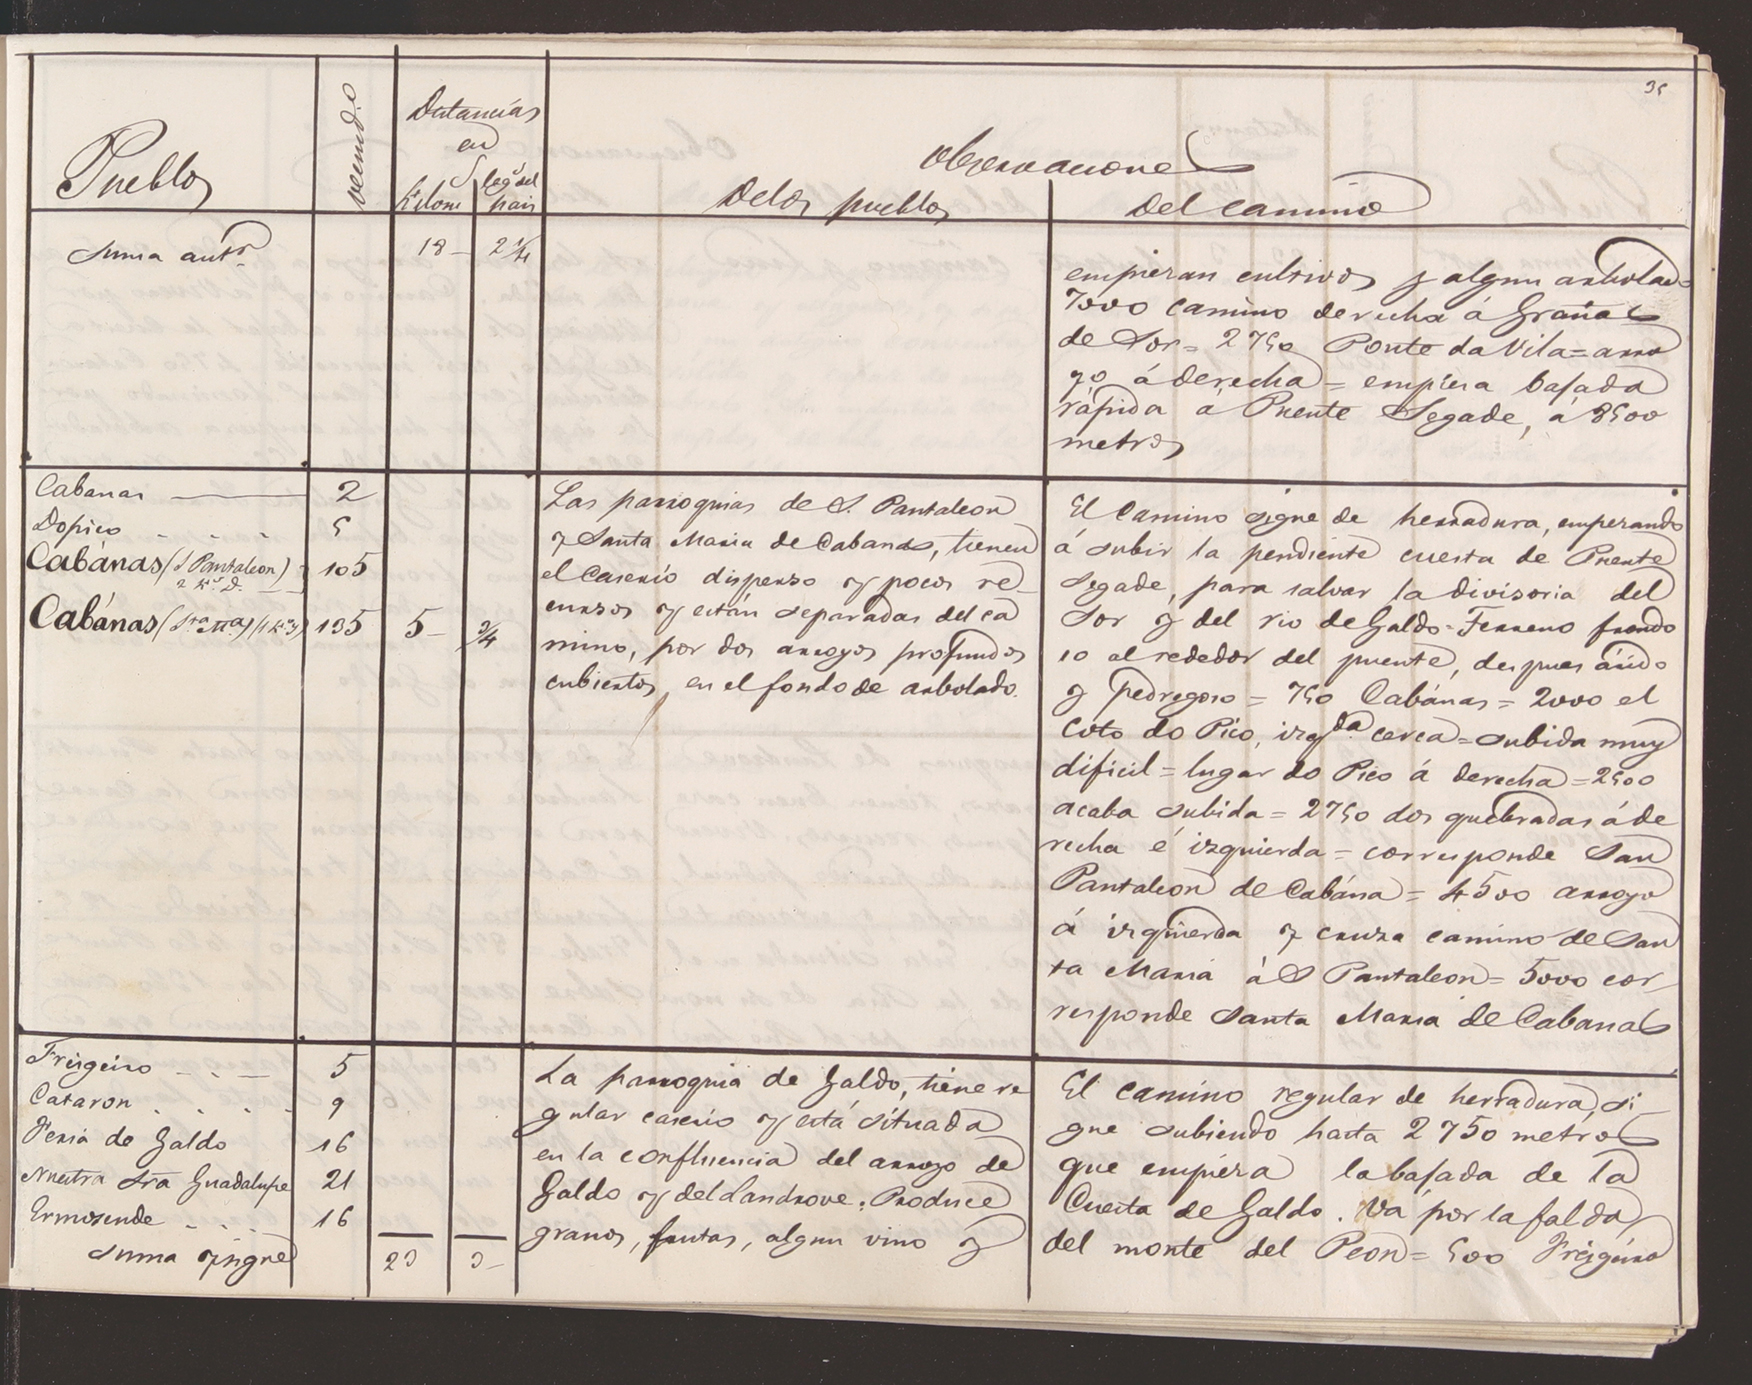 35
Pueblos
vecind.o
Distancias
en
Kilom
leg.s del
pais
Observaciones
de los pueblos
del camino
Suma ant.r
18 —
2 1/4
empiezan cultivos y algun arbolado
7000 camino derecha á Grañas
de Sor = 2750 Ponte da Vila = arro
yo á derecha = empieza bajada
rápida á Puente Segade, á 3500
metros
Cabanas —— 2
Dopico . . . 5
Cabánas (S Pantaleon) 105
2 K.s D.
Cabánas (Sta Ma) (1 K.Y) 135
5 —
3/4
Las parroquias de S. Pantaleon
y Santa Maria de Cabanas, tienen
el Caserio disperso y pocos re
cursos y están separadas del ca
mino, por dos arroyos profundos
cubiertos, en el fondo de arbolado.
El Camino sigue de herradura, empezando
á subir la pendiente cuesta de Puente
Segade, para salvar la divisoria del
Sor y del rio de Galdo = Terreno frondo
so al rededor del puente, despues árido
y pedregoso = 750 Cabánas = 2000 el
Coto do Pico, izqda cerca = subida muy
dificil = lugar do Pico á derecha = 2500
acaba subida = 2750 dos quebradas á de
recha é izquierda = corresponde San
Pantaleon de Cabána = 4500 arroyo
á izquierda y cruza camino de San
ta Maria á S Pantaleon = 5000 cor
responde Santa Maria de Cabanas
Freigeiro - . — 5
Cataron . . . . 9
Feria de Galdo 16
Nuestra Sra Guadalupe 21
Ermosende . . . 16
Suma y sigue
23
3 —
La parroquia de Galdo, tiene re
gular caserio y está situada
en la confluencia del arroyo de
Galdo y del Landrove. Produce
granos, frutas, algun vino y
El camino regular de herradura, si
gue subiendo hasta 2750 metros
que empieza la bajada de la
Cuesta de Galdo. Vá por la falda
del monte del Peon = 500 Freigeiro